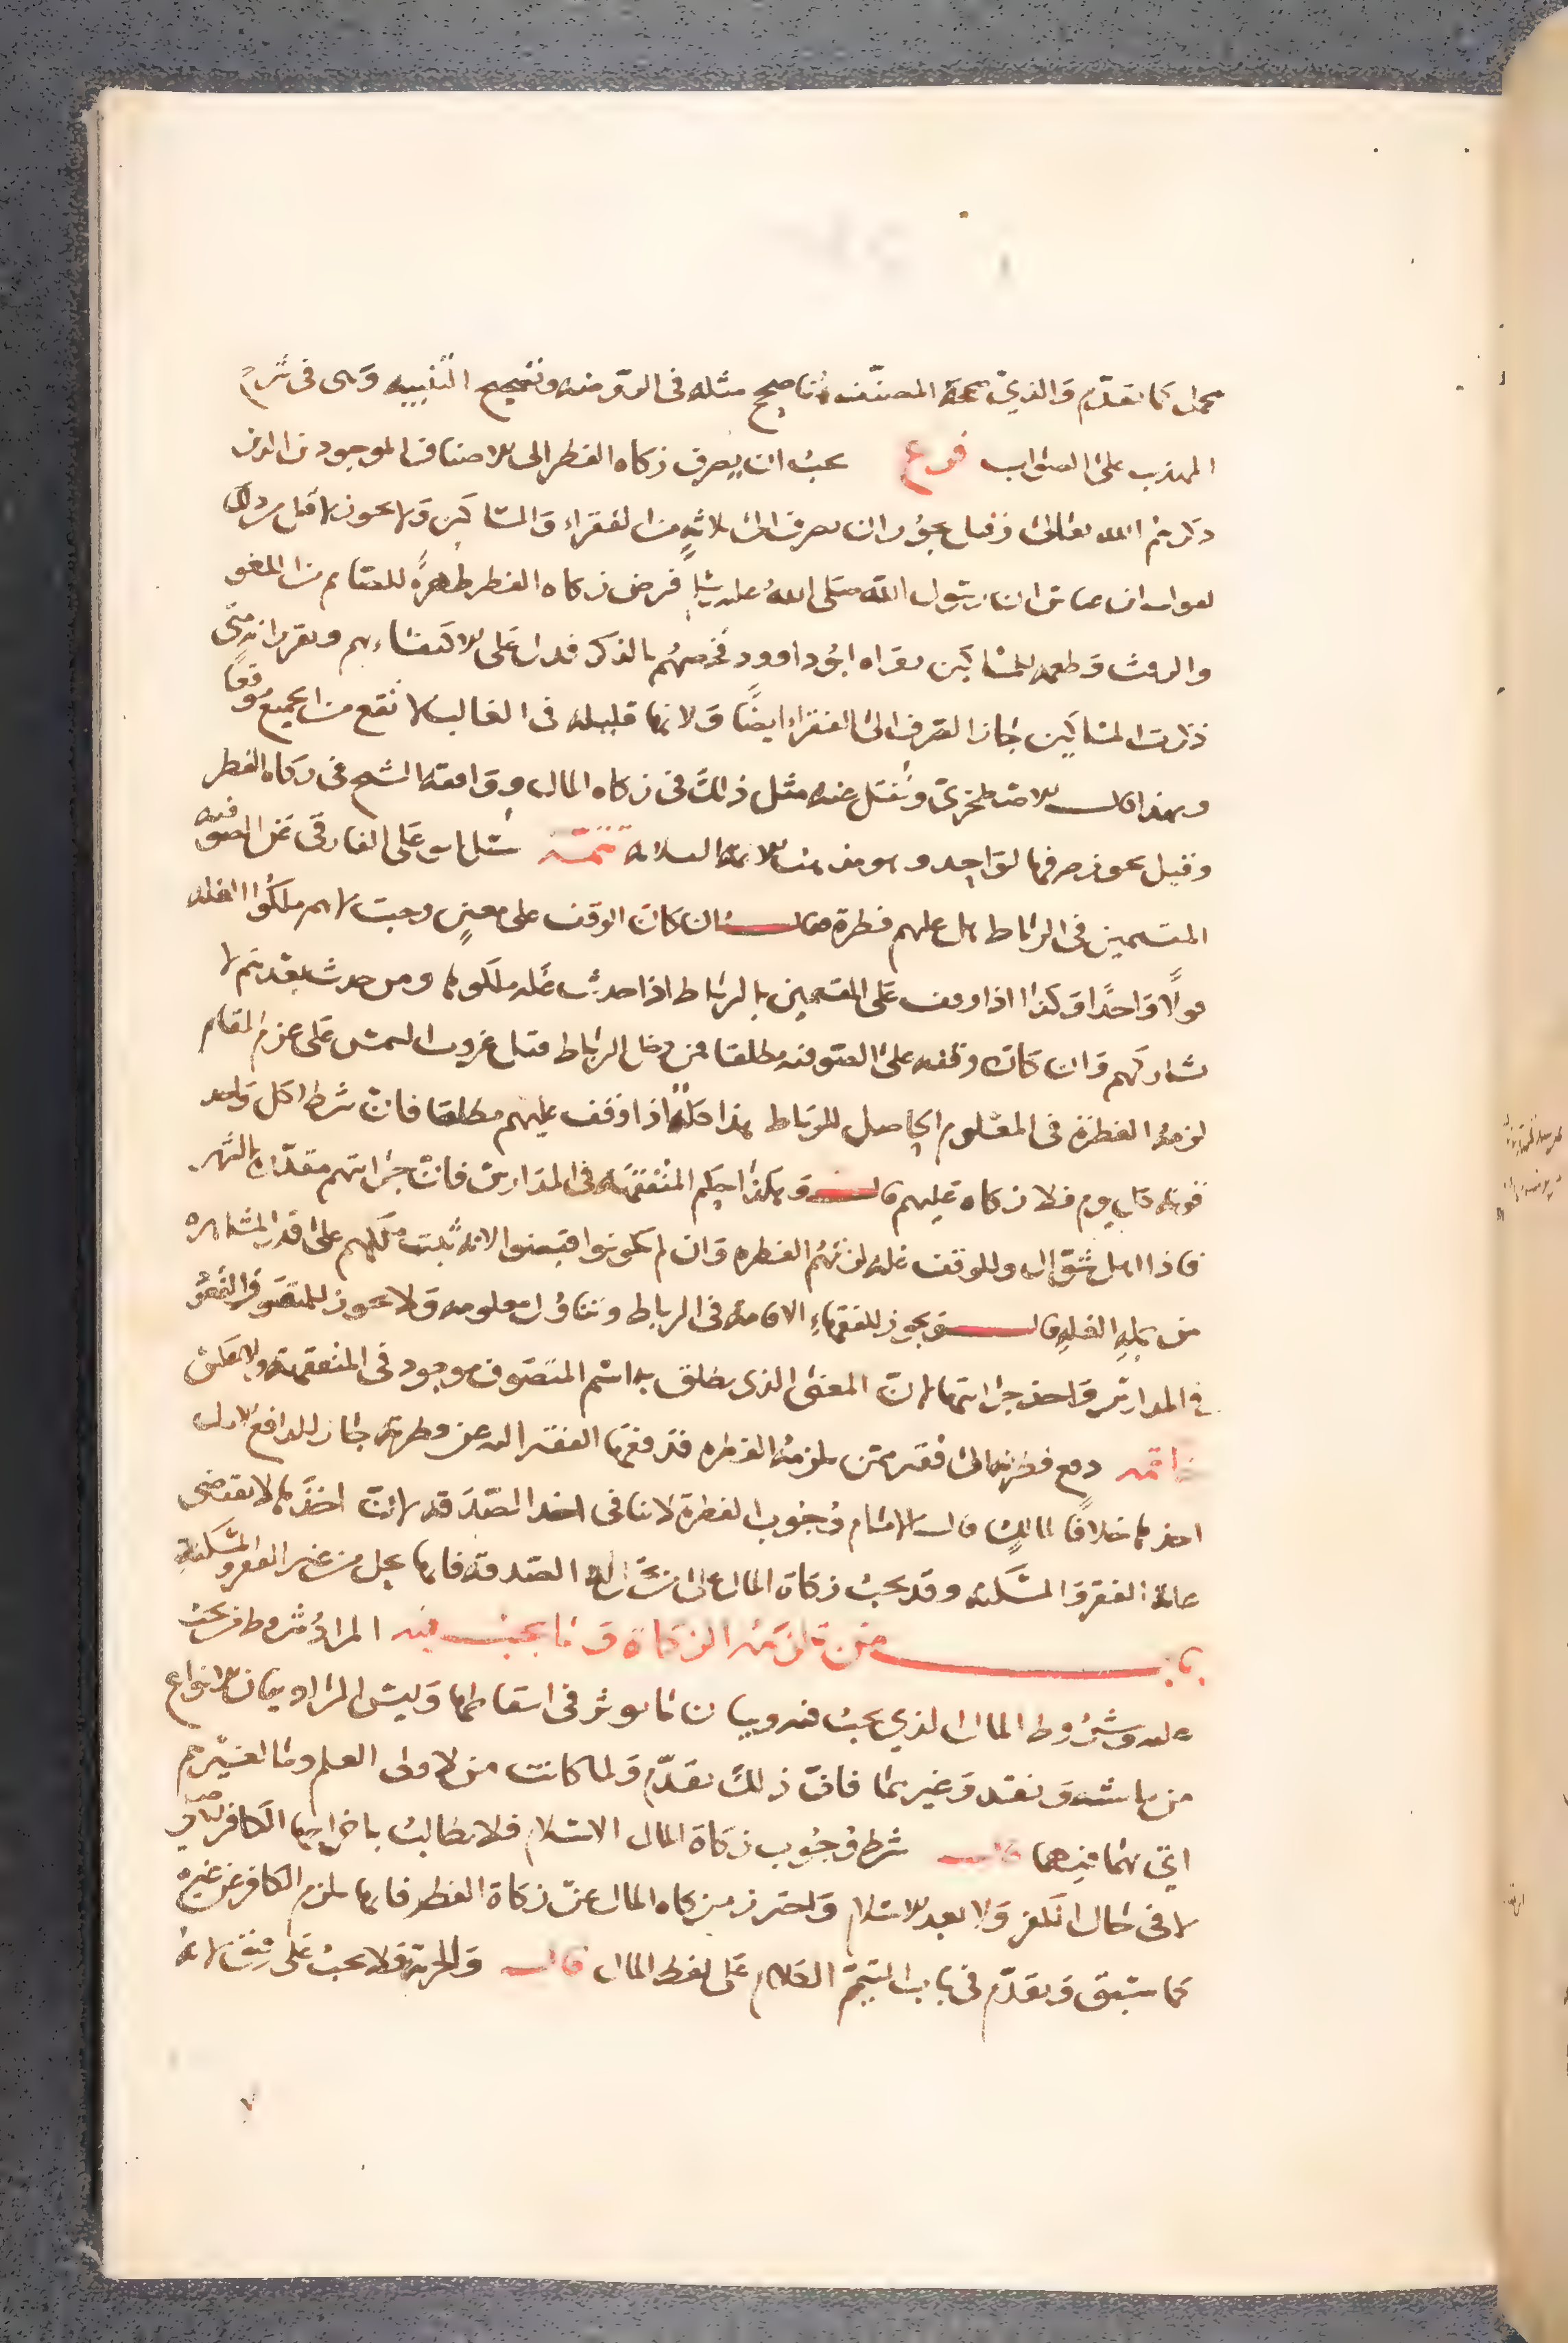 محل كما تقدم والذي صححه المصنف هنا صحح مثله في الروضة وتصحيح التنبيه ومشى في شرح
المهذب على الصواب فرع يجب ان يصرف زكاه الفطر الى الاصناف الموجودين الذين
ذكرهم الله تعالى وقيل يجوز ان يصرف الى ثلاثة من الفقراء والمساكين ولا يجوز لاقل من ذلك
لقول ابن عباس ان رسول الله صلى الله عليه وسلم فرض زكاه الفطر طهرة للصائم من اللغو
والرفث وطعمه للمساكين رواه ابو داوود فخصهم بالذكر فدل على الاكتفاء بهم وتقرر انه متى
ذكرت المساكين جاز الصرف الى الفقراء ايضا ولانها قليله في الغالب لا تقع من الجميع موقعا
وبهذا قال الاصطخري ونقل عنه مثل ذلك في زكاه المال ووافقه الشيخ في زكاه الفطر
وقيل يجوز صرفها لواحد وهو مذهب الائمة الثلاثة تتمة سئل ابو علي الفارقي عن الصوفيه
المقيمين في الرباط هل عليهم فطرة فقال ان كان الوقف على معين وجبت لانهم ملكوا الغله
قولا واحدا وكذا اذا وقف على المقيمين بالرباط اذا حدثت غله ملكوها ومن حدث بعدهم لا
يشاركهم وان كان وقفه على الصوفيه مطلقا فمن دخل الرباط قبل غروب الشمس على عزم المقام
لزمه الفطرة في المعلوم الحاصل للرباط هذا كله اذا وقف عليهم مطلقا فان شرط لكل واحد
قوته كل يوم فلا زكاه عليهم قال وهكذا حكم المتفقهه في المدارس فان جراياتهم مقدره بالشهر
فاذا اهل شوال وللوقف غله لزمهم الفطره وان لم يكونوا قبضوا لانه ثبت ملكهم على قدر المشاهره
من جمله الغله قال ويجوز للفقهاء الاقامه في الرباط وتناول معلومه ولا يجوز للمتصوف القعود
في المدارس واخذ جراياتها لان المعنى الذي يطلق به اسم المتصوف موجود في المتفقهة ولا ينعكس
خاتمه دفع فطرته الى فقير ممن يلزمه الفطره فدفعها الفقير اليه عن فطرته جاز للدافع الاول
اخذها خلافا لمالك قال الامام وجوب الفطرة لا ينافي اخذ الصدقه لان اخذها لا يقتضي
غاية الفقر والمسكنه وقد يجب زكاة المال على من تحل له الصدقه فانها تحل من غير الفقر والمسكنة
باب من تلزمه الزكاة وما تجب فيه المراد شروط من تجب
عليه وشروط المال الذي تجب فيه وبيان ما يوثر في اسقاطها وليس المراد بيان الانواع
من ماشية ونقد وغيرهما فان ذلك تقدم ولما كانت من لاولي العلم وما لغيرهم
اتى بهما فيهما قال شرط وجوب زكاة المال الاسلام فلا يطالب باخراجها الكافر الاصلي
لا في حال الكفر ولا بعد الاسلام واحترز بزكاه المال عن زكاة الفطر فانها تلزم الكافر عن غيره
كما سبق وتقدم في باب التيمم الكلام على لفظ المال قال والحرية فلا تجب على رقيق لانه
٧